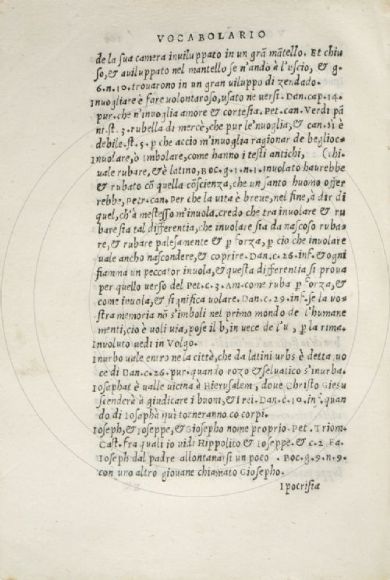 VOCABOLARIO
de la sua camera inviluppato in un grā mātello. Et chiu
so, & aviluppato nel mantello se n'andò à l'uscio, & g.
6.n.10. trovarono in un gran viluppo di zendado.
Invogliare è fare volontaroso, usato ne versi. Dan. cap. 14.
pur. che n'invoglia amore & cortesia. Pet. can. Verdi pā
ni. st. 3. rubella di mercè, che pur le'nvoglia, & can. Si è
debile. st. 5. p che accio m'invoglia ragionar de begliocc
Involare, ò imbolare, come hanno i testi antichi, (hi.
uale rubare, & è latino, Boc. g. 1. n. 1. Involato haurebbe
& rubato cō quella cōscienza, che un santo huomo offer
rebbe, Pet. can. Per che la vita è breve, nel fine, à dir di
quel, ch'à me stesso m'invola. credo che tra involare & ru
bare sia tal differentia, che involare sia da nascoso ruba
re, & rubare palesamente & p forza, p cio che involare
uale ancho nascondere, & coprire. Dan. c. 26. inf. & ogni
fiamma un peccator invola, & questa differentia si prova
per quello verso del Pet. c. 3. Am. come ruba p forza, &
come invola, & significa volare. Dan. c. 29. inf. se la vo
stra memoria nō s'imboli nel primo mondo de l'humane
menti, cio è voli via, pose il b, in vece de l'u, p la rima.
Involuto vedi in Volgo.
Inurbo vale entro ne la città, che da latini urbs è detta, vo
ce di Dan. c. 26. pur. quando rozo & selvatico s'inurba.
Iosephat è valle vicina à Hierusalem, dove Christo Giesu
scenderà à giudicare i buoni, & i rei. Dan. c. 10. inf. quan
do di Iosaphà qui torneranno co corpi.
Ioseph, & Ioseppe, & Giosepho nome proprio. Pet. Triom.
Cast. fra quali io vidi Hippolito & Ioseppe. & c. 2. Fa.
Ioseph dal padre allontanarsi un poco. Boc. g. 9. n. 9.
con uno altro giovane chiamato Giosepho.
Ipocrisia